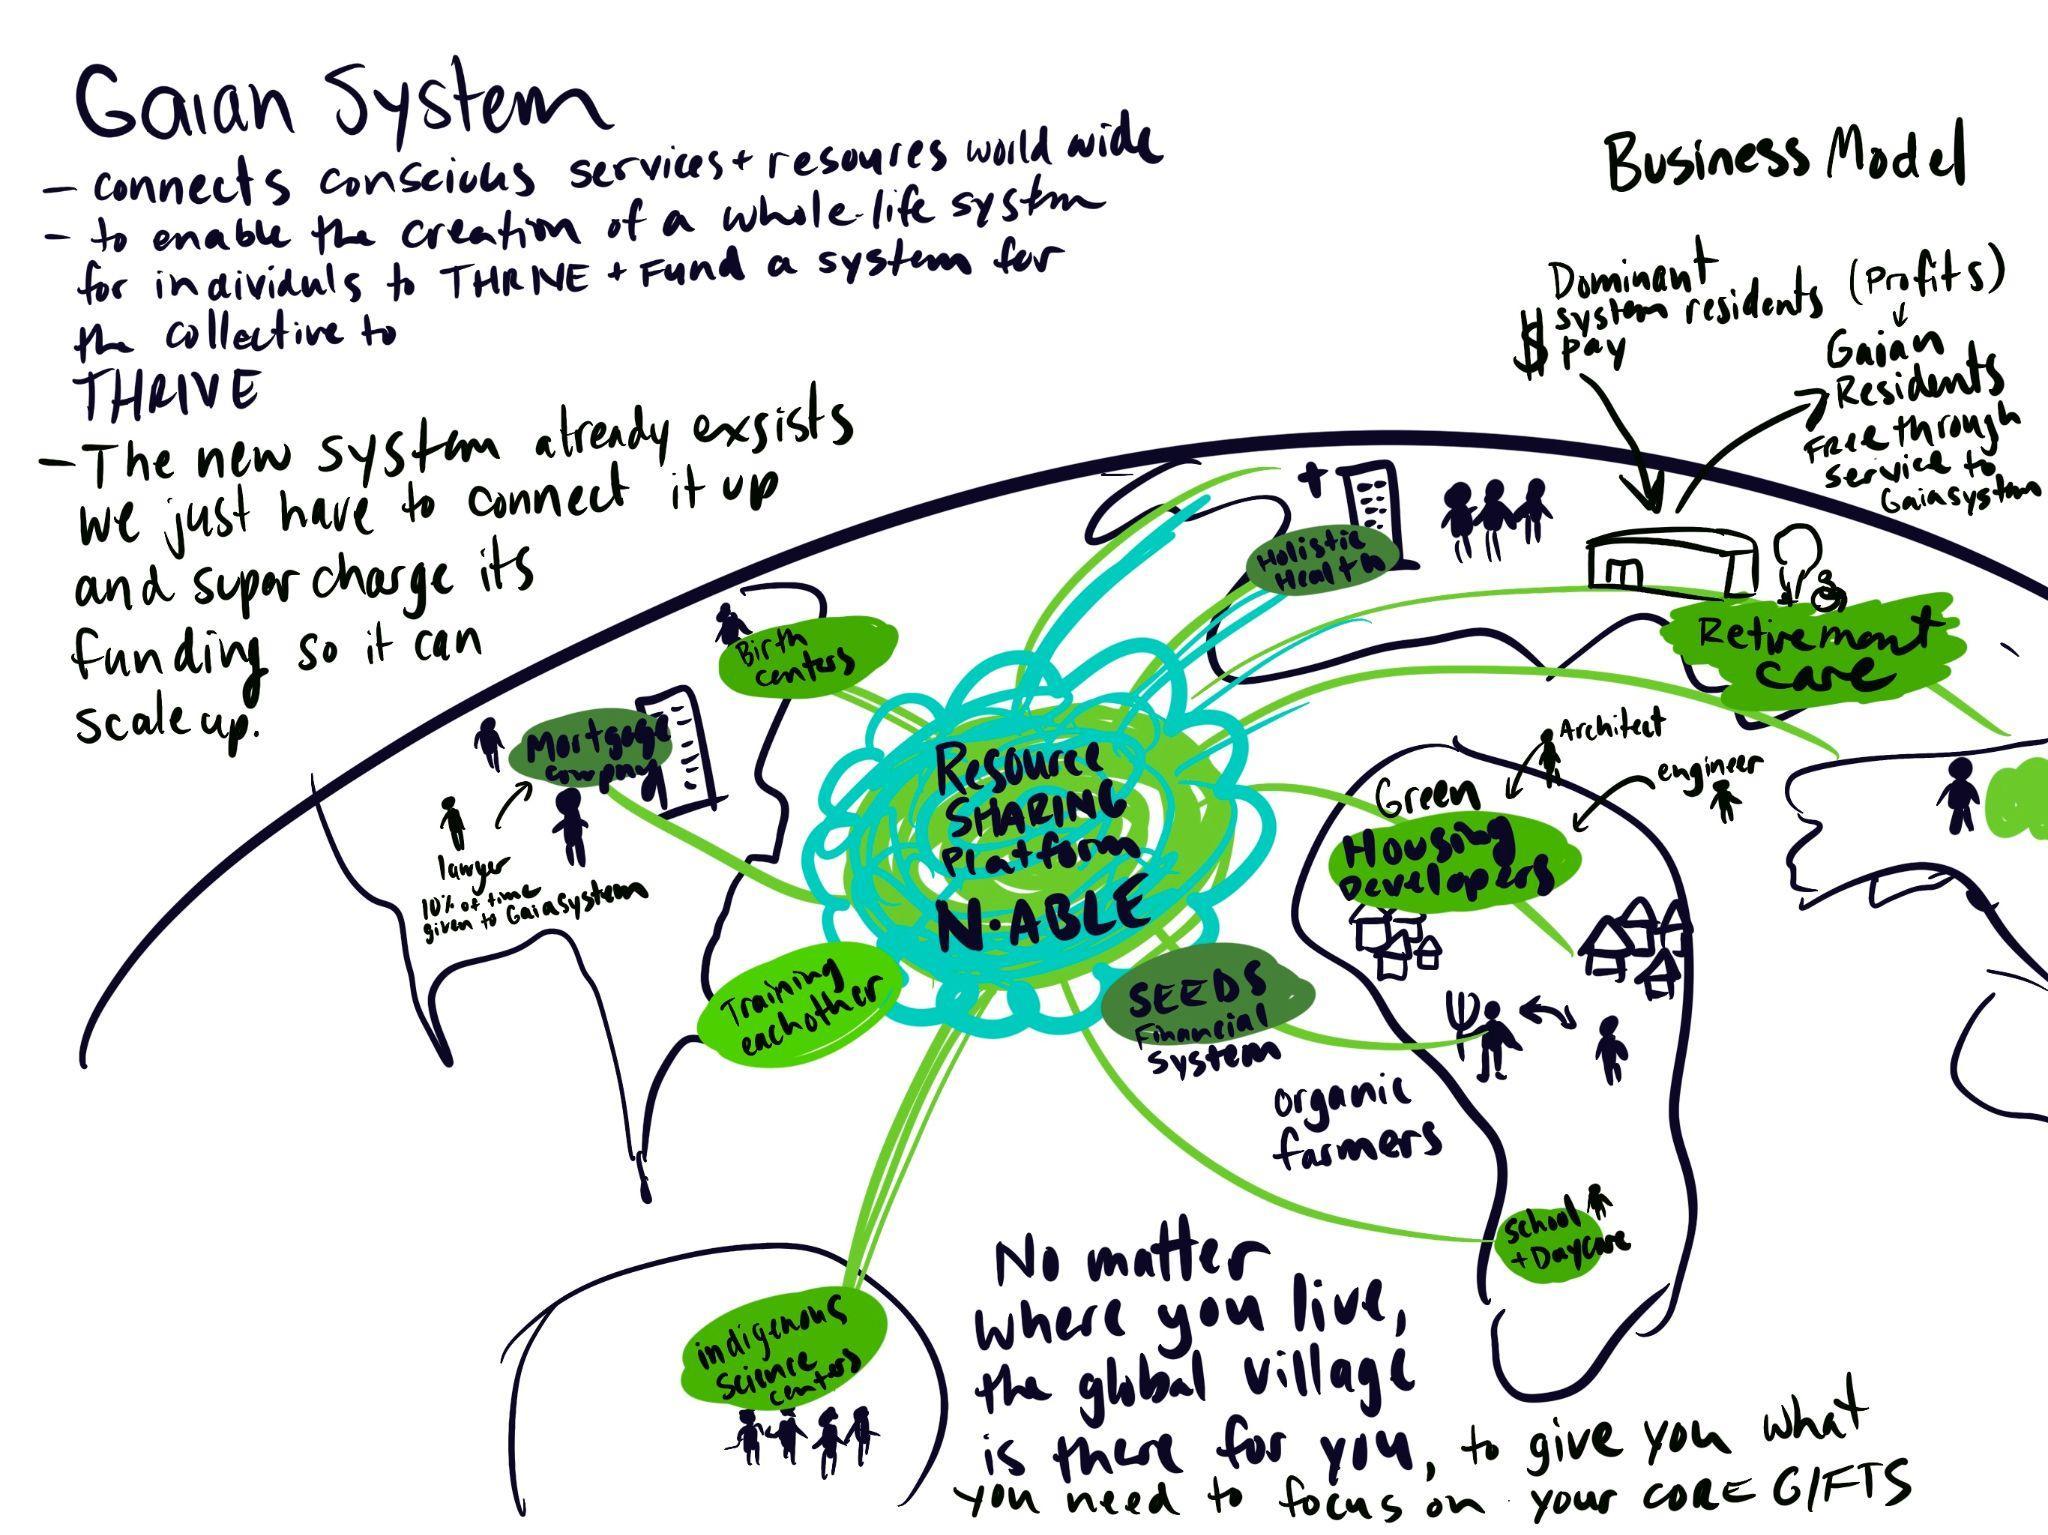 Gaian System
- connects conscious services + resoures world wide
- to enable the creation of a whole-life system
for individuls to THRIVE + Fund a system for
the collective to
THRIVE
- The new system already exsists
we just have to connect it up
and super charge its
funding so it can
scale up.
Business Model
Dominant
system residents (Profits)
$ pay
Gaian
Residents
Free through
service to
Gaiasystem
Holistic
Health
Birth
centers
Retirement
care
Mortgage
company
lawyer
10% of time
given to Gaiasystem
Resource
SHARING
Platform
N·ABLE
Architect
engineer
Green
Housing
Developers
Training
eachother
SEEDS
Financial
system
organic
farmers
School
+ Daycare
indigenous
science
centers
No matter
where you live,
the global village
is there for you, to give you what
you need to focus on your CORE GIFTS